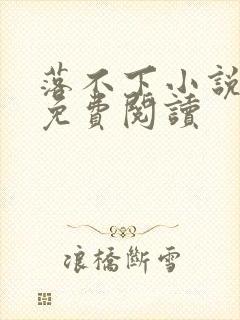 落不下小說
免費閱讀
浪橋斷雪